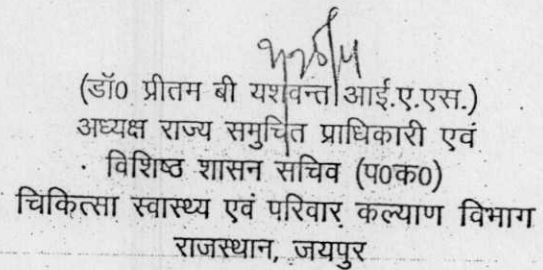 (डॉ0 प्रीतम बी यशवन्त आई.ए.एस.)
अध्यक्ष राज्य समुचित प्राधिकारी एवं
विशिष्ठ शासन सचिव (प0क0)
चिकित्सा स्वास्थ्य एवं परिवार कल्याण विभाग
राजस्थान, जयपुर